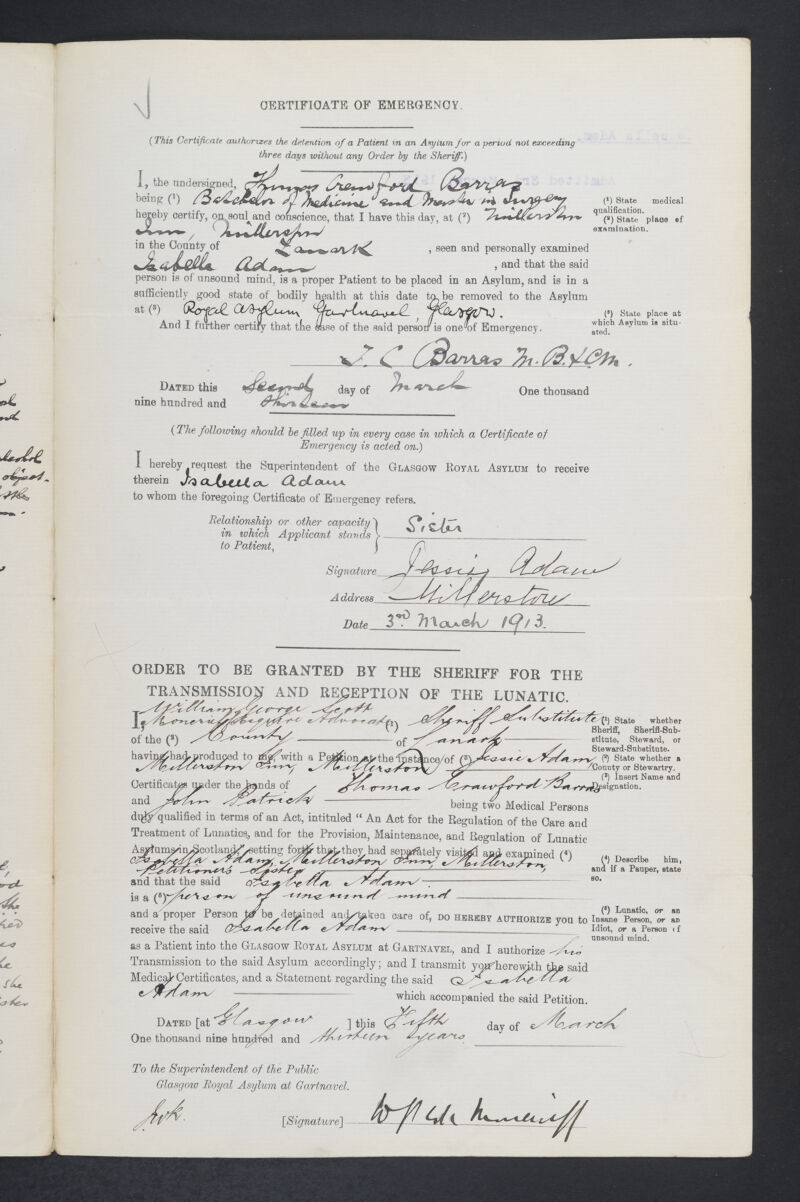 CERTIFICATE OF EMERGENCY.
(This Certificate authorizes the detention of a Patient in an Asylum for a period not exceeding
three days without any Order by the Sheriff.)
I, the undersigned, Thomas Crawford Barras
being (1) Batchelor of Medicine and Master in Surgery
(1) State medical
qualification.
hereby certify, on soul and conscience, that I have this day, at (2) Millerston
(2) State place of
examination.
Inn, Millerston
in the County of Lanark, seen and personally examined
Isabella Adam, and that the said
person is of unsound mind, is a proper Patient to be placed in an Asylum, and is in a
sufficiently good state of bodily health at this date to be removed to the Asylum
at (3) Royal Asylum Gartnavel, Glasgow.
(3) State place at
which Asylum is situ-
ated.
And I further certify that the case of the said person is one of Emergency.
T. C. Barras M.B. & C.M.
DATED this Second day of March One thousand
nine hundred and thirteen
(The following should be filled up in every case in which a Certificate of
Emergency is acted on.)
I hereby request the Superintendent of the GLASGOW ROYAL ASYLUM to receive
therein Isabella Adam
to whom the foregoing Certificate of Emergency refers.
Relationship or other capacity
in which Applicant stands
to Patient,
Sister
Signature Jessie Adam
Address Millerston
Date 3rd March 1913.
ORDER TO BE GRANTED BY THE SHERIFF FOR THE
TRANSMISSION AND RECEPTION OF THE LUNATIC.
William George Scott
I, Moncrieff Esquire Advocate (1) Sheriff Substitute
(1) State whether
Sheriff, Sheriff-Sub-
stitute, Steward, or
Steward-Substitute.
of the (2) County of Lanark
(2) State whether a
County or Stewartry.
having had produced to me, with a Petition at the instance of (3) Jessie Adam
(3) Insert Name and
Designation.
Millerston Inn, Millerston
Certificates under the hands of Thomas Crawford Barras
and John Patrick being two Medical Persons
duly qualified in terms of an Act, intituled "An Act for the Regulation of the Care and
Treatment of Lunatics, and for the Provision, Maintenance, and Regulation of Lunatic
Asylums in Scotland," setting forth that they had separately visited and examined (4)
(4) Describe him,
and if a Pauper, state
so.
Isabella Adam, Millerston Inn, Millerston,
Petitioner's Sister
and that the said Isabella Adam
is a (5) person of unsound mind
(5) Lunatic, or an
Insane Person, or an
Idiot, or a Person of
unsound mind.
and a proper Person to be detained and taken care of, DO HEREBY AUTHORIZE you to
receive the said Isabella Adam
as a Patient into the GLASGOW ROYAL ASYLUM at GARTNAVEL, and I authorize his
Transmission to the said Asylum accordingly; and I transmit you herewith the said
Medical Certificates, and a Statement regarding the said Isabella
Adam which accompanied the said Petition.
DATED [at Glasgow ] this Fifth day of March
One thousand nine hundred and thirteen years
To the Superintendent of the Public
Glasgow Royal Asylum at Gartnavel.
[Signature]